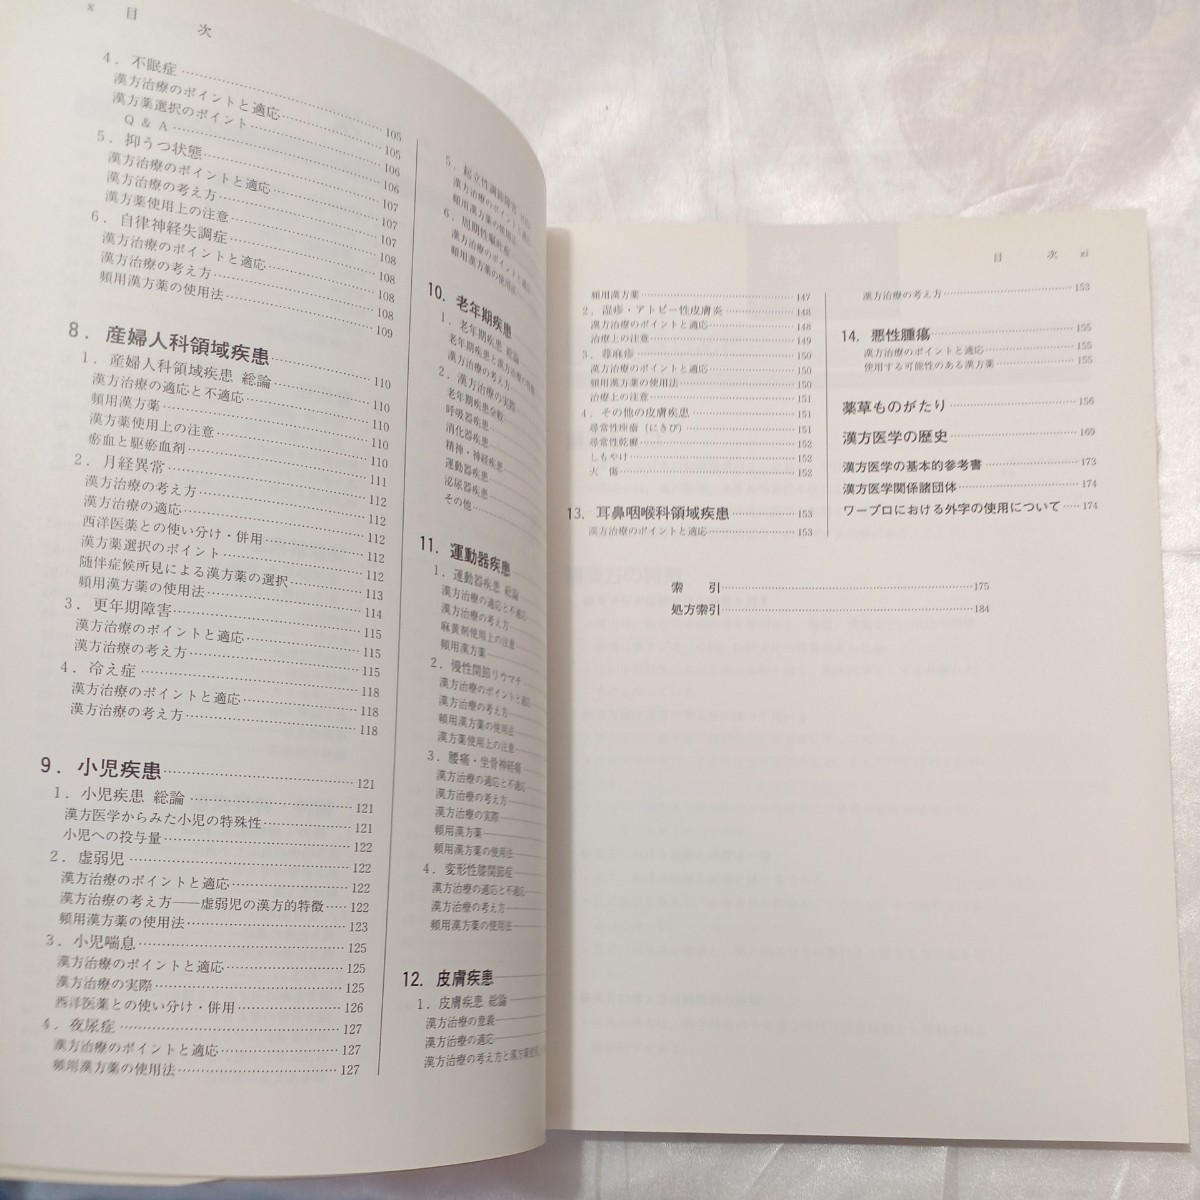 x 目 次
4．不眠症 105
漢方治療のポイントと適応 105
漢方薬選択のポイント 106
Q & A 106
5．抑うつ状態 107
漢方治療のポイントと適応 107
漢方治療の考え方 107
漢方薬使用上の注意 108
6．自律神経失調症 108
漢方治療のポイントと適応 108
漢方治療の考え方 108
頻用漢方薬の使用法 109
8．産婦人科領域疾患 110
1．産婦人科領域疾患 総論 110
漢方治療の適応と不適応 110
頻用漢方薬 110
漢方薬使用上の注意 110
瘀血と駆瘀血剤 111
2．月経異常 112
漢方治療の考え方 112
漢方治療の適応 112
西洋医薬との使い分け・併用 112
漢方薬選択のポイント 112
随伴症候所見による漢方薬の選択 113
頻用漢方薬の使用法 114
3．更年期障害 115
漢方治療のポイントと適応 115
漢方治療の考え方 115
4．冷え症 118
漢方治療のポイントと適応 118
漢方治療の考え方 118
9．小児疾患 121
1．小児疾患 総論 121
漢方医学からみた小児の特殊性 121
小児への投与量 122
2．虚弱児 122
漢方治療のポイントと適応 122
漢方治療の考え方――虚弱児の漢方的特徴 122
頻用漢方薬の使用法 123
3．小児喘息 125
漢方治療のポイントと適応 125
漢方治療の実際 125
西洋医薬との使い分け・併用 126
4．夜尿症 127
漢方治療のポイントと適応 127
頻用漢方薬の使用法 127
5．起立性調節障害
漢方治療のポイントと適応
頻用漢方薬の使用法
6．周期性嘔吐症
漢方治療のポイントと適応
頻用漢方薬の使用法
10．老年期疾患
1．老年期疾患 総論
老年期疾患と漢方治療の特徴
漢方治療の考え方
2．漢方治療の実際
老年期疾患全般
呼吸器疾患
消化器疾患
精神・神経疾患
運動器疾患
泌尿器疾患
その他
11．運動器疾患
1．運動器疾患 総論
漢方治療の適応と不適応
漢方治療の考え方
麻黄剤使用上の注意
頻用漢方薬
2．慢性関節リウマチ
漢方治療のポイントと適応
漢方治療の考え方
頻用漢方薬の使用法
漢方薬使用上の注意
3．腰痛・坐骨神経痛
漢方治療の適応と不適応
漢方治療の考え方
漢方治療の実際
頻用漢方薬
頻用漢方薬の使用法
4．変形性膝関節症
漢方治療の適応と不適応
漢方治療の考え方
頻用漢方薬の使用法
12．皮膚疾患
1．皮膚疾患 総論
漢方治療の意義
漢方治療の適応
漢方治療の考え方と漢方薬
目 次 xi
頻用漢方薬 147
2．湿疹・アトピー性皮膚炎 148
漢方治療のポイントと適応 148
治療上の注意 149
3．蕁麻疹 150
漢方治療のポイントと適応 150
頻用漢方薬の使用法 150
治療上の注意 151
4．その他の皮膚疾患 151
尋常性痤瘡（にきび） 151
尋常性乾癬 152
しもやけ 152
火 傷 152
13．耳鼻咽喉科領域疾患 153
漢方治療のポイントと適応 153
漢方治療の考え方 153
14．悪性腫瘍 155
漢方治療のポイントと適応 155
使用する可能性のある漢方薬 155
薬草ものがたり 156
漢方医学の歴史 169
漢方医学の基本的参考書 173
漢方医学関係諸団体 174
ワープロにおける外字の使用について 174
索 引 175
処方索引 184